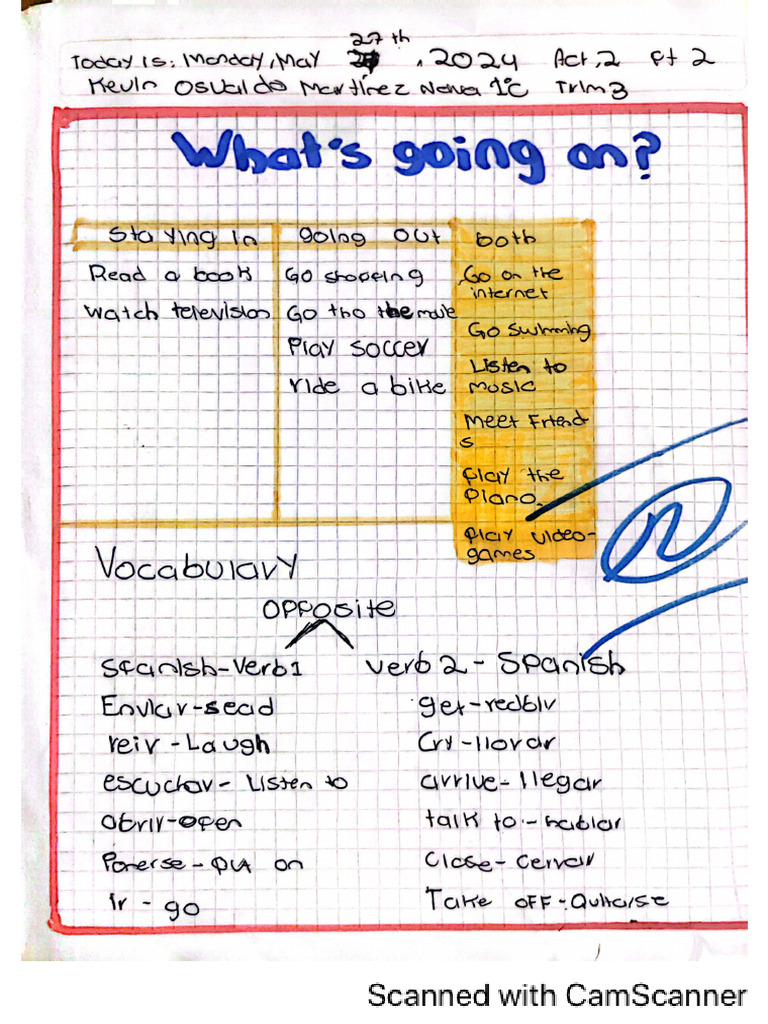 27th
Today is: Monday, May , 2024 Act,2 pt 2
Kevin Osvaldo Martínez Nava 1°C Trim 3
What's going on?
Staying in going out both
Read a book Go shopping Go on the
internet
Watch television Go tho the movie
Go swimming
Play soccer
Listen to
ride a bike music
Meet Friend
s
Play the
Piano.
play video-
games
Vocabulary
opposite
Spanish-Verb1 verb 2 - Spanish
Enviar-sead get-recibir
reir - Laugh Cry -llorar
escuchar - Listen to arrive- llegar
abrir-open talk to - hablar
Ponerse - put on Close - Cerrar
Ir - go Take oFF -
Scanned with CamScanner